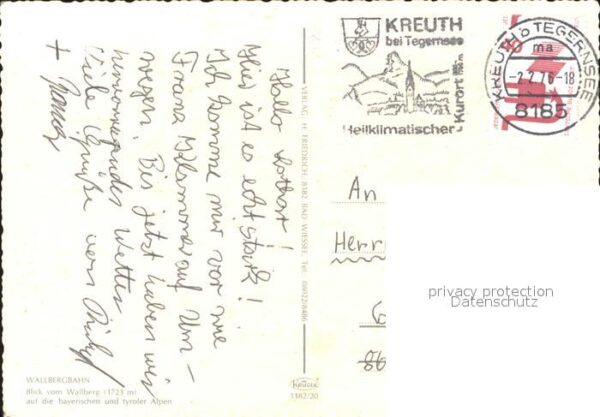 Hallo Lothar!
Hier ist es echt stark!
Ich komme mir vor wie
Franz Klammer auf Um-
wegen. Bis jetzt haben wir
hervorragendes Wetter
Viele Grüße von
+
WALLBERGBAHN
Blick vom Wallberg (1723 m)
auf die bayerischen und tyroler Alpen
VERLAG H. FRIEDRICH, 8182 BAD WIESSEE, Tel. 08022/8486
Krüger
1182/20
KREUTH
bei Tegernsee
Heilklimatischer Kurort
KREUTH b TEGERNSEE
ma
-2.2.76-18
8185
An
Herr
privacy protection
Datenschutz